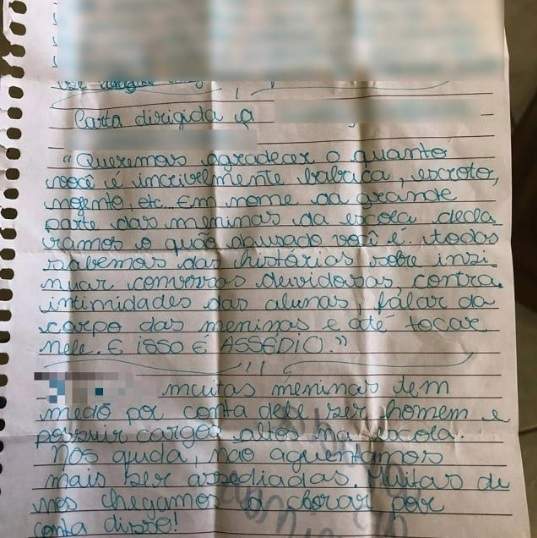 Carta dirigida a
"Queremos agradecer o quanto
você é incrivelmente babaca, escroto,
nogento etc. Em nome da grande
parte das meninas da escola decla
ramos o quão abusado você é. todos
sabemos das histórias sobre insi
nuar conversas devidosas, contra
intimidades das alunas, falar do
corpo das meninas e até tocar
nele. E ISSO É ASSÉDIO."
muitas meninas tem
medo por conta dele ser homem e
possuir cargos altos na escola.
Nos ajuda não aguentamos
mais ser assediadas. Muitas de
nós chegamos a chorar por
conta disso!